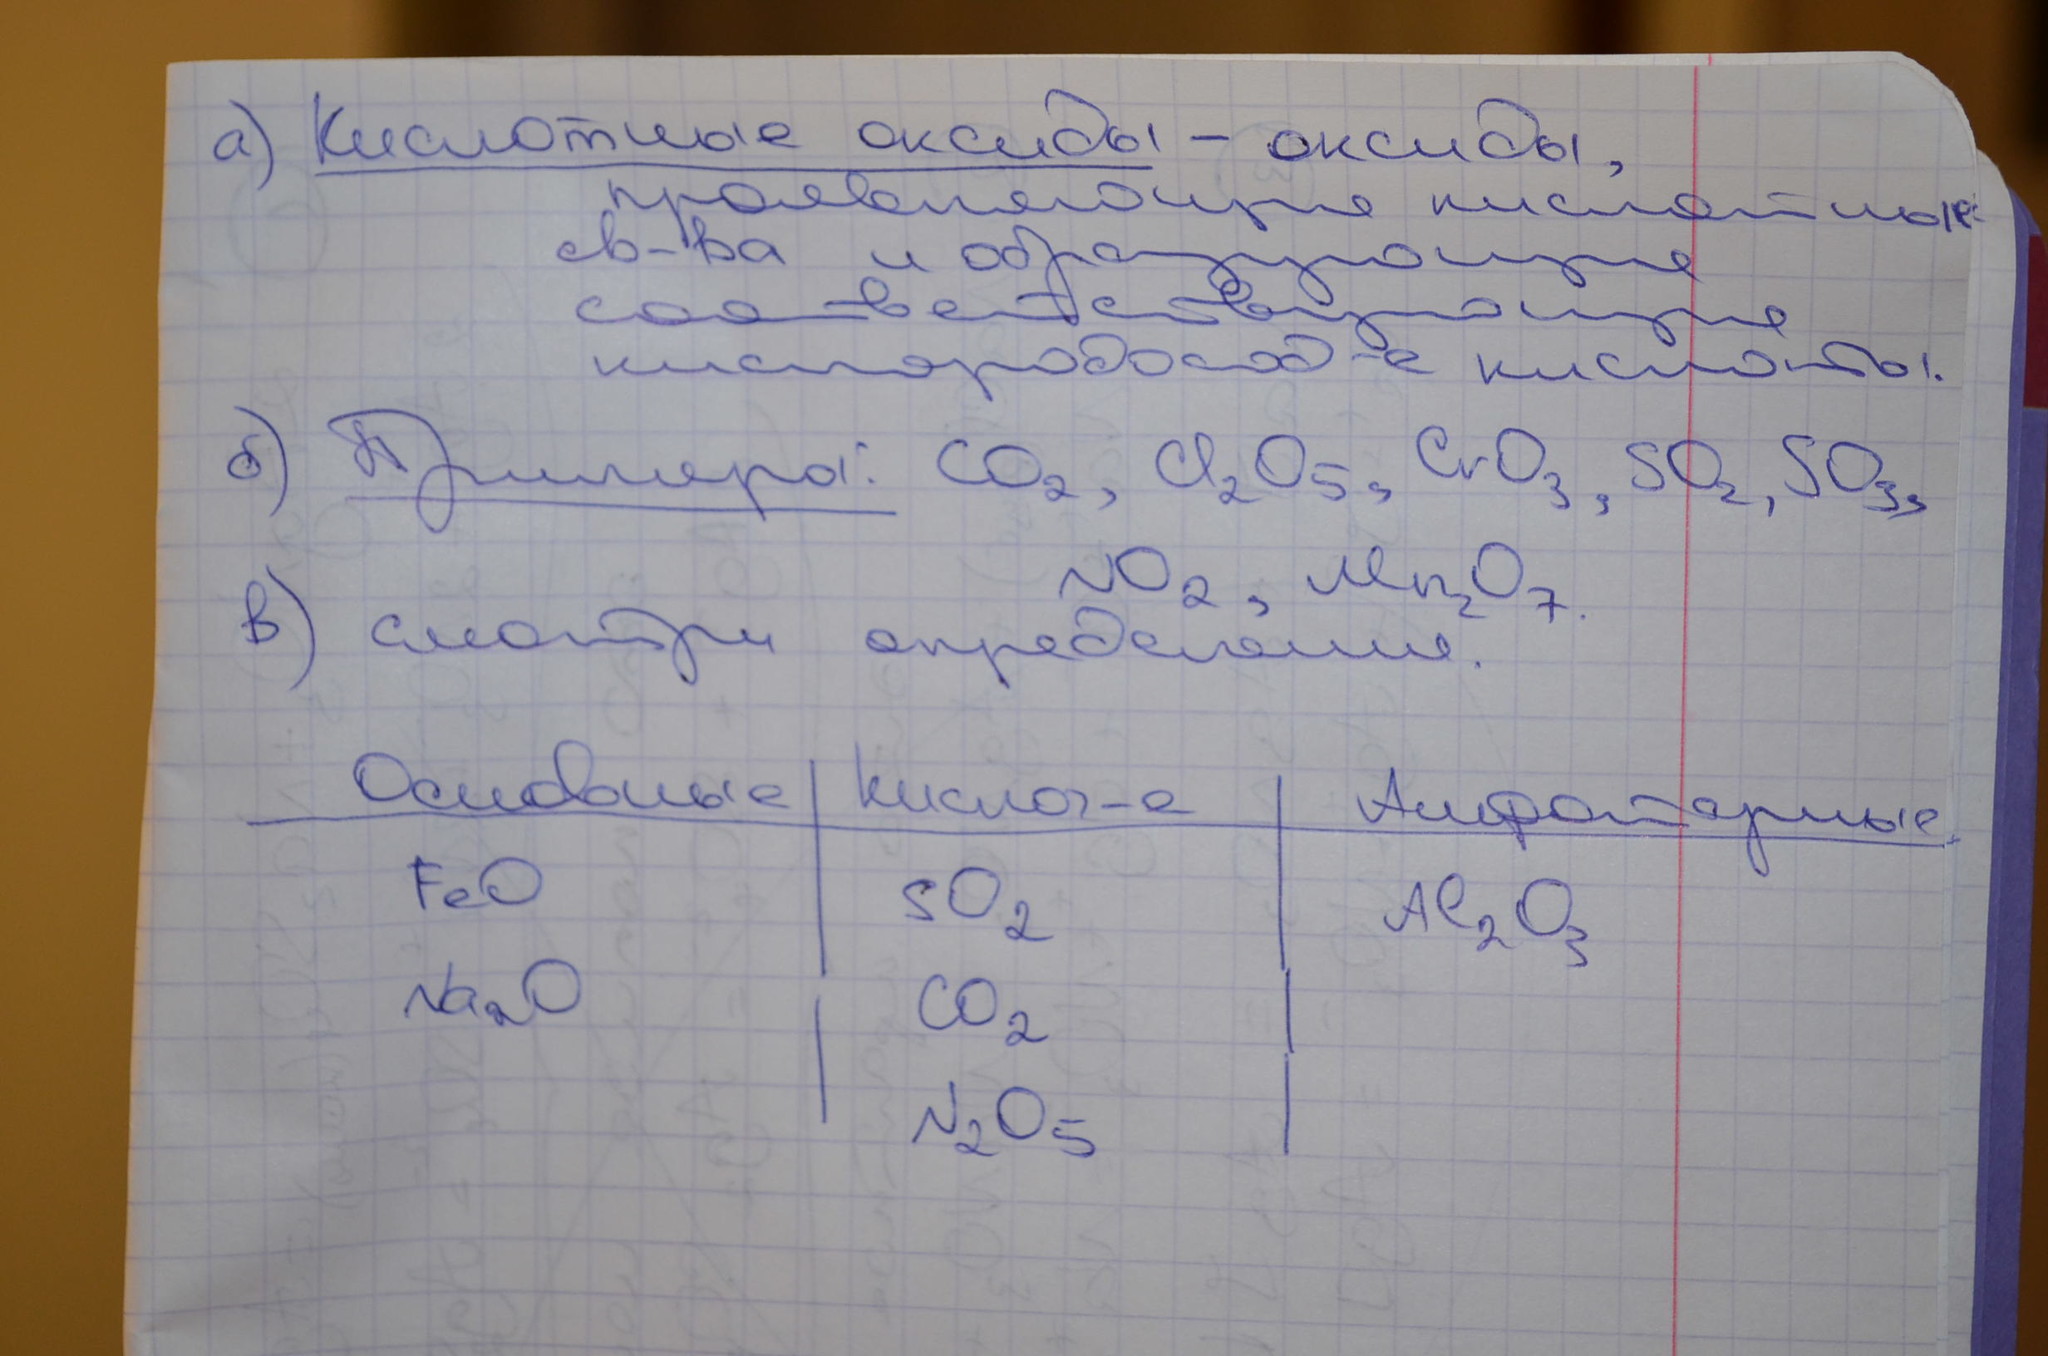 а) Кислотные оксиды – оксиды,
проявляющие кислотные
св-ва и образующие
соответствующие
кислородосод-е кислоты.
б) Примеры: CO₂, Cl₂O₅, CrO₃, SO₂, SO₃,
NO₂, Mn₂O₇.
в) смотри определение.
Основные | Кислот-е | Амфотерные
FeO | SO₂ | Al₂O₃
Na₂O | CO₂
N₂O₅